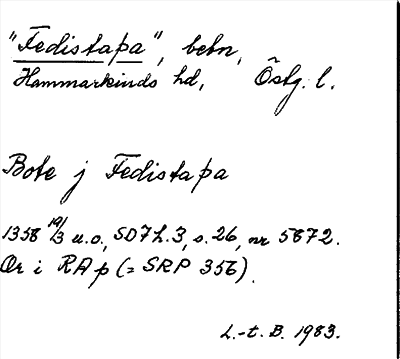 "Fedistaþa", bebn,
Hammarkinds hd, Östg. l.
Bote j Fedistaþa
1358 19/3 u.o., SD 7 h.3, s.26, nr 5872.
Or i RAp (= SRP 356).
L.-t. B. 1983.